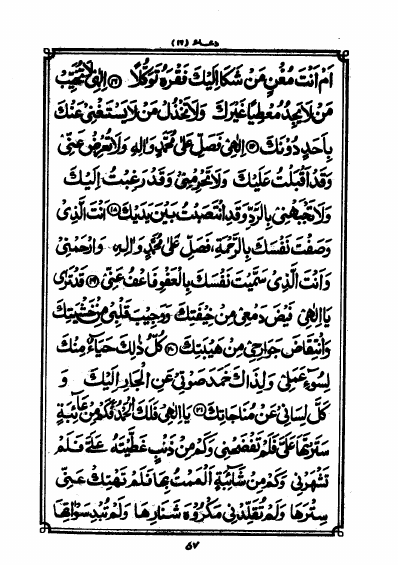 دعاء (١٦)
اَمْ اَنْتَ مُغْنٍ مَنْ شَكَا اِلَيْكَ فَقْرَهُ تَوَكُّلًا اِلٰهِي لَا تُخَيِّبْ
مَنْ لَا يَجِدُ مُعْطِيًا غَيْرَكَ وَلَا تَخْذُلْ مَنْ لَا يَسْتَغْنِي عَنْكَ
بِاَحَدٍ دُونَكَ اِلٰهِي فَصَلِّ عَلٰى مُحَمَّدٍ وَاٰلِهِ وَلَا تُعْرِضْ عَنِّي
وَقَدْ اَقْبَلْتُ عَلَيْكَ وَلَا تَحْرِمْنِي وَقَدْ رَغِبْتُ اِلَيْكَ
وَلَا تَجْبَهْنِي بِالرَّدِّ وَقَدِ انْتَصَبْتُ بَيْنَ يَدَيْكَ (١٨) اَنْتَ الَّذِي
وَصَفْتَ نَفْسَكَ بِالرَّحْمَةِ، فَصَلِّ عَلٰى مُحَمَّدٍ وَاٰلِهِ، وَارْحَمْنِي
وَاَنْتَ الَّذِي سَمَّيْتَ نَفْسَكَ بِالْعَفْوِ فَاعْفُ عَنِّي (١٩) قَدْ تَرٰى
يَا اِلٰهِي فَيْضَ دَمْعِي مِنْ خِيفَتِكَ وَوَجِيبَ قَلْبِي مِنْ خَشْيَتِكَ
وَانْتِقَاضَ جَوَارِحِي مِنْ هَيْبَتِكَ (٢٠) كُلُّ ذٰلِكَ حَيَاءً مِنْكَ
لِسُوءِ عَمَلِي وَلِذَاكَ خَمَدَ صَوْتِي عَنِ الْجَارِ اِلَيْكَ وَ
كَلَّ لِسَانِي عَنْ مُنَاجَاتِكَ (٢١) يَا اِلٰهِي فَلَكَ الْحَمْدُ فَكَمْ مِنْ عَائِبَةٍ
سَتَرْتَهَا عَلَيَّ فَلَمْ تَفْضَحْنِي وَكَمْ مِنْ ذَنْبٍ غَطَّيْتَهُ عَلَيَّ فَلَمْ
تَشْهَرْنِي وَكَمْ مِنْ شَائِبَةٍ اَلْمَمْتُ بِهَا فَلَمْ تَهْتِكْ عَنِّي
سِتْرَهَا وَلَمْ تُقَلِّدْنِي مَكْرُوهَ شَنَارِهَا وَلَمْ تُبْدِ سَوْاٰتِهَا
٥٧